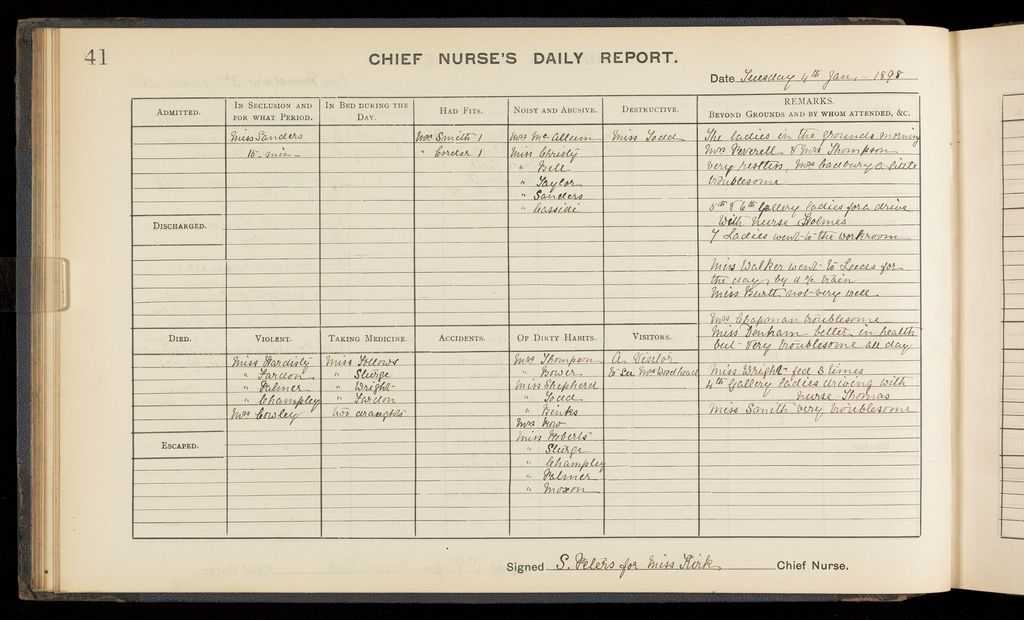 41
CHIEF NURSE'S DAILY REPORT.
Date Tuesday 4th Jan. 1898
ADMITTED.
IN SECLUSION AND
FOR WHAT PERIOD.
Miss Sanders
15 min
IN BED DURING THE
DAY.
HAD FITS.
Mrs Smith 1
" Corder 1
NOISY AND ABUSIVE.
Mrs McAllum
Miss Christy
" Bell
" Taylor
" Sanders
" Cassidi
DESTRUCTIVE.
Miss Todd
REMARKS.
BEYOND GROUNDS AND BY WHOM ATTENDED, &C.
The ladies in the grounds morning
Mrs Peverell & Mrs Thompson
very restless, Mrs Cadbury a little
troublesome
5th & 6th Gallery ladies for a drive
with Nurse Holmes
7 Ladies went to the workroom
Miss Walker went to Leeds for
the day, by 11 train
Miss Burtt not very well.
Mrs Chapman troublesome
Miss Denham better in health
but very troublesome all day
Miss Wright fed 3 times
4th Gallery ladies driving with
Nurse Thomas
Miss Smith very troublesome
DISCHARGED.
DIED.
VIOLENT.
Miss Hardisty
" Fardon
" Palmer
" Champley
Mrs Cowley
TAKING MEDICINE.
Miss Follows
" Sturge
" Wright
" Fardon
two draughts
ACCIDENTS.
OF DIRTY HABITS.
Mrs Thompson
" Bower
Miss Shepherd
" Todd
" Binks
Mrs How
Miss Roberts
" Sturge
" Champley
" Palmer
" Moxon
VISITORS.
A Visitor
to see Mrs Woodhead
ESCAPED.
Signed S. Peters for Miss Kirk Chief Nurse.